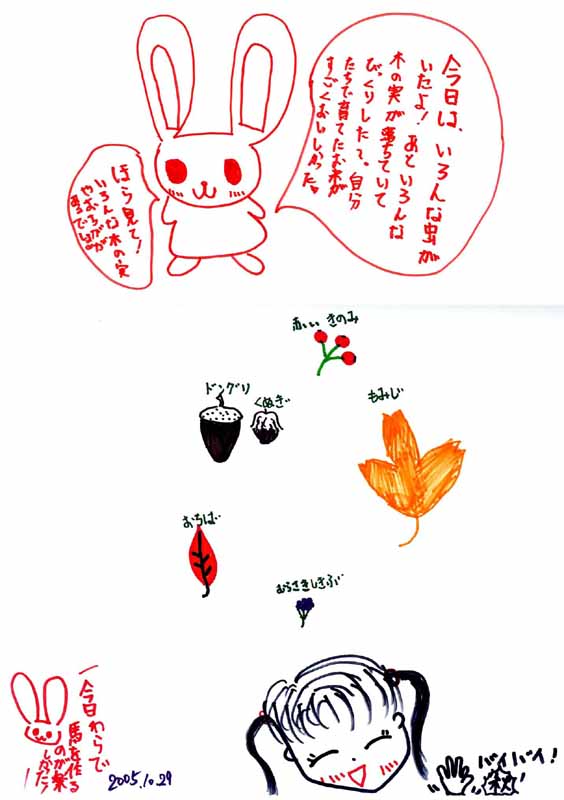 今日は、いろんな虫が
いたよ！あといろんな
木の実が落ちていて
びっくりした〜。自分
たちで育てたお米が
すごくおいしかった。
ほら見て！
いろんな木の実
やおちばが
あるでしょ
赤いきのみ
ドングリ
くぬぎ
もみじ
おちば
むらさきしきぶ
今日わらで
馬を作る
のが楽
しかた！
2005.10.29
バイバイ！
秋